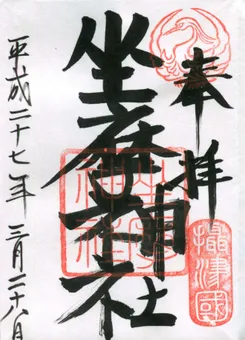 奉拝
攝津國
坐摩神社
平成二十七年三月二十八日